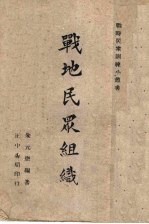 戰時民眾訓練小叢書
戰地民眾組織
秦元邦編著
正中書局印行